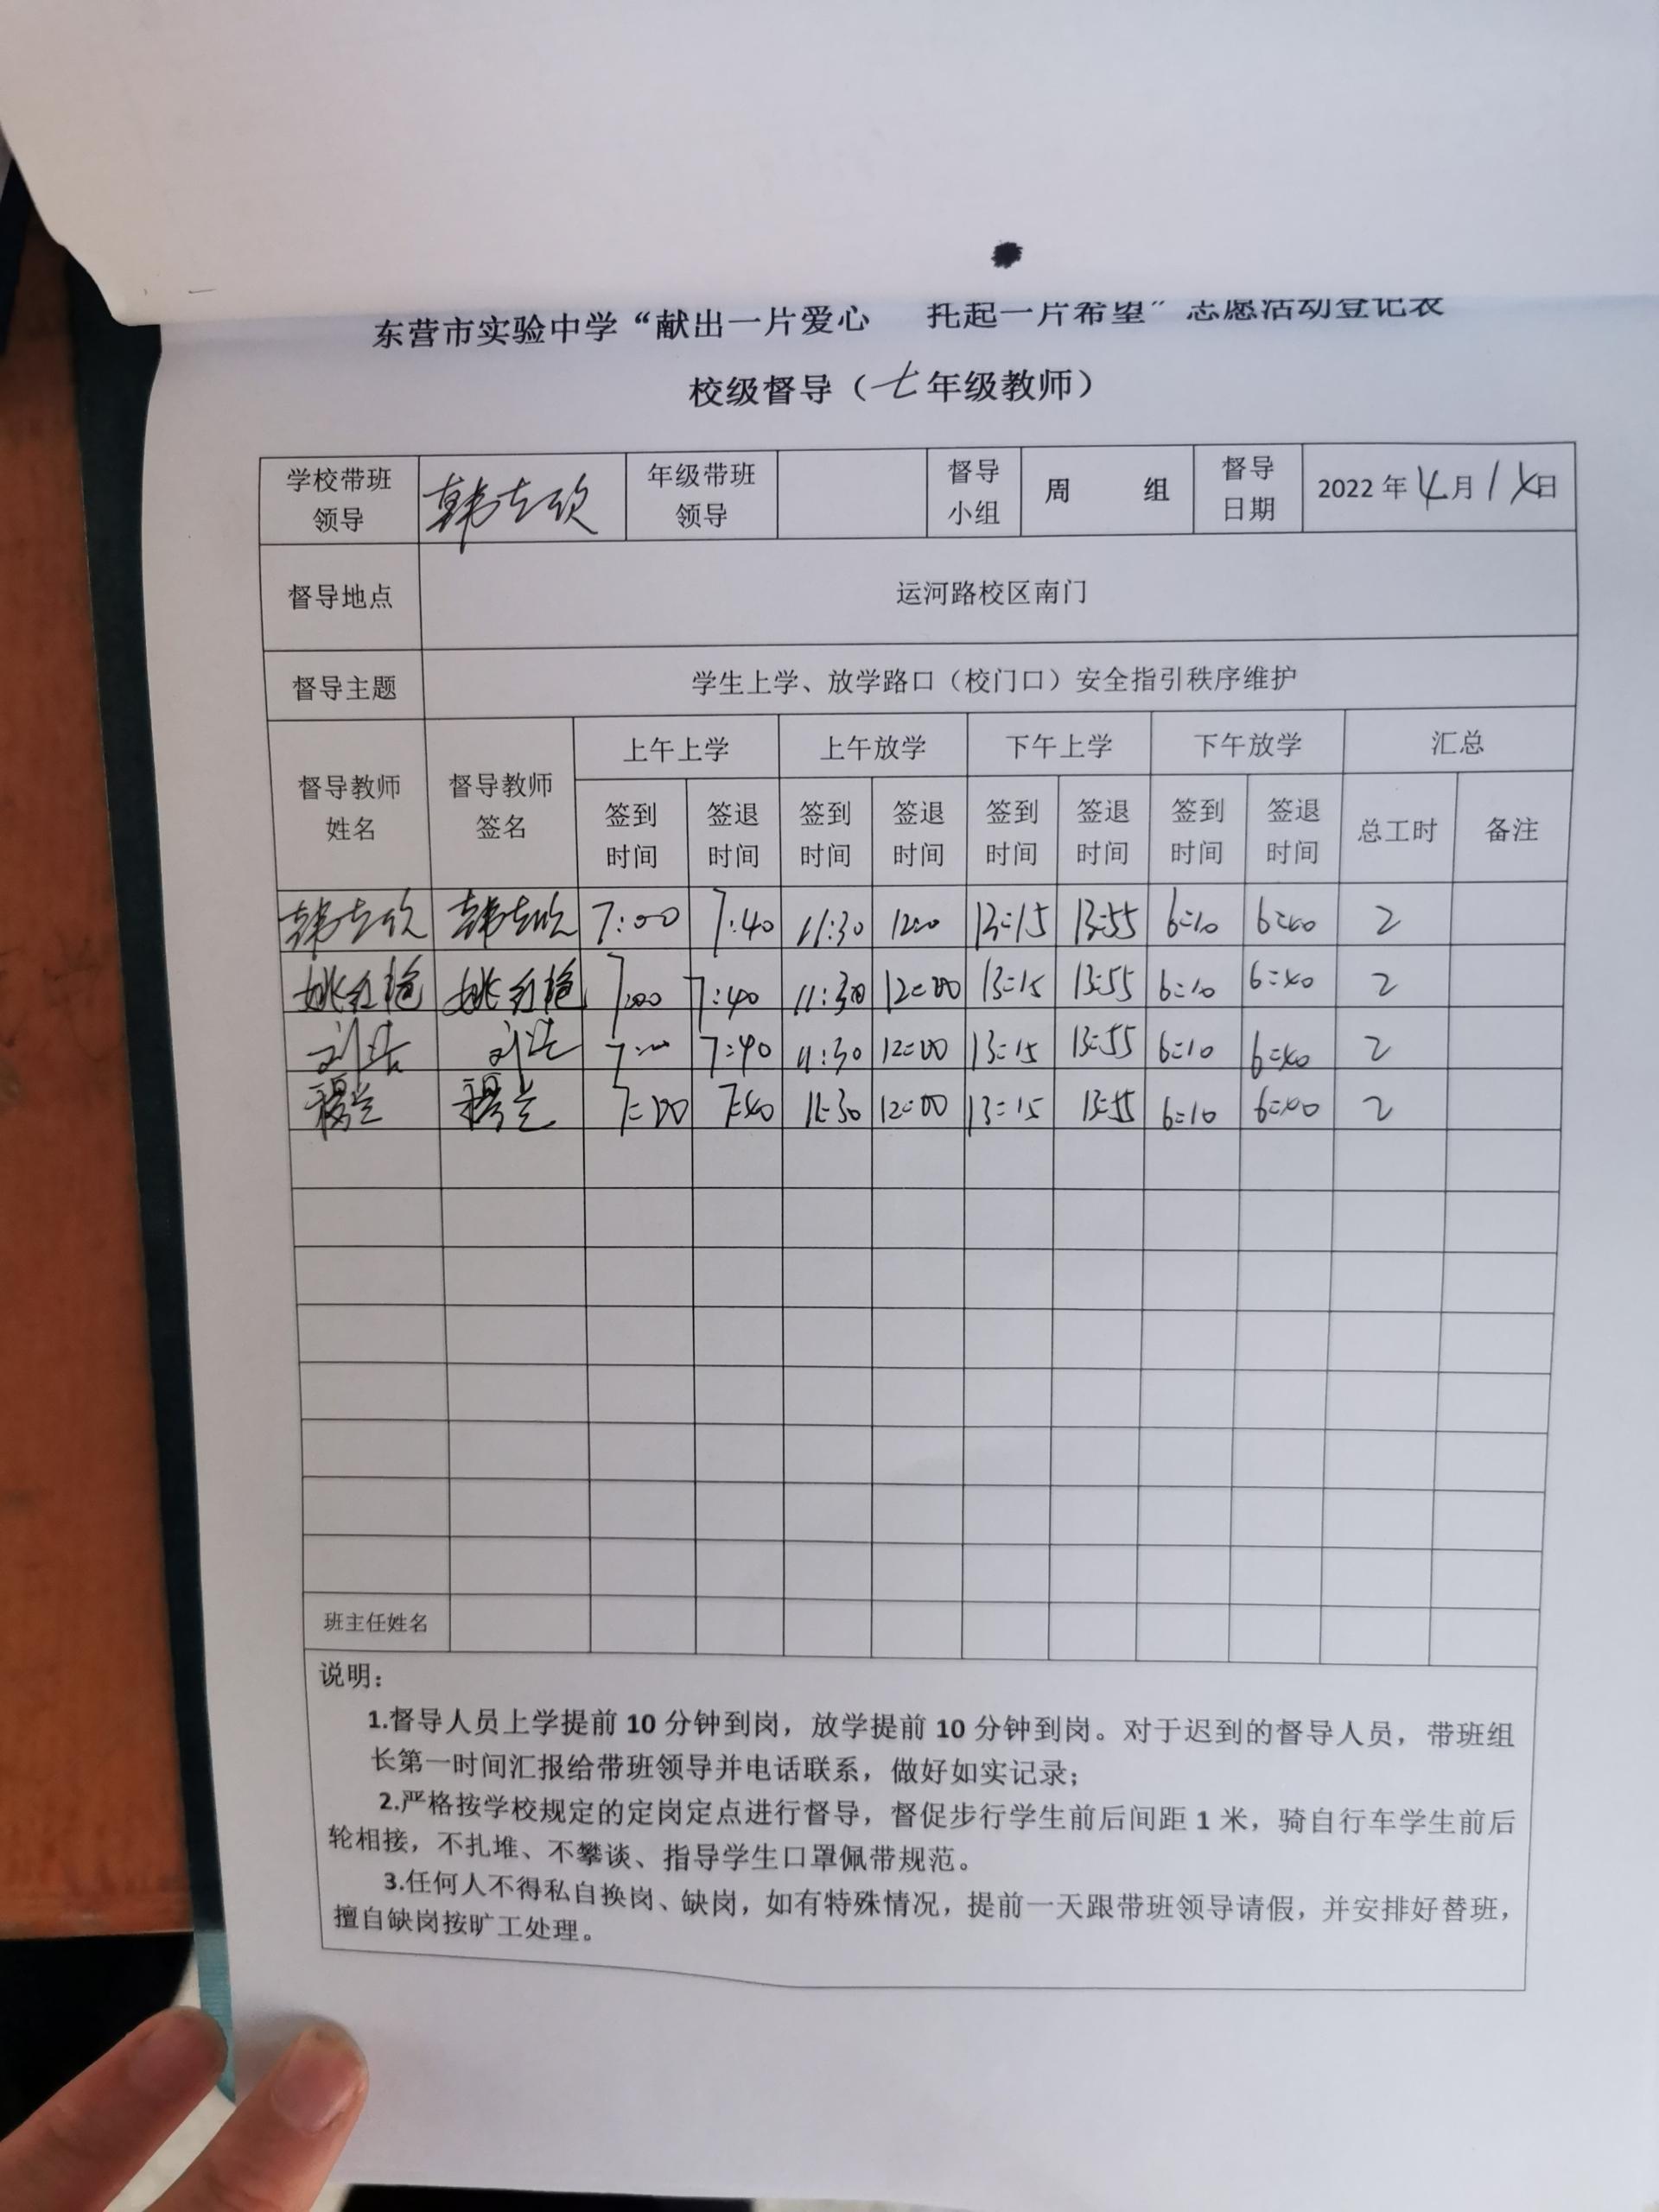 东营市实验中学“献出一片爱心 托起一片希望”志愿活动登记表
校级督导（七年级教师）
学校带班领导 年级带班领导 督导小组 周 组 督导日期 2022年4月14日
督导地点 运河路校区南门
督导主题 学生上学、放学路口（校门口）安全指引秩序维护
督导教师姓名 督导教师签名 上午上学 上午放学 下午上学 下午放学 汇总
签到时间 签退时间 签到时间 签退时间 签到时间 签退时间 签到时间 签退时间 总工时 备注
7:00 7:40 11:30 12:00 13:15 13:55 6:10 6:40 2
姚红艳 姚红艳 7:00 7:40 11:30 12:00 13:15 13:55 6:10 6:40 2
刘浩 刘浩 7:00 7:40 11:30 12:00 13:15 13:55 6:10 6:40 2
7:00 7:40 11:30 12:00 13:15 13:55 6:10 6:40 2
班主任姓名
说明：
1.督导人员上学提前10分钟到岗，放学提前10分钟到岗。对于迟到的督导人员，带班组
长第一时间汇报给带班领导并电话联系，做好如实记录；
2.严格按学校规定的定岗定点进行督导，督促步行学生前后间距1米，骑自行车学生前后
轮相接，不扎堆、不攀谈、指导学生口罩佩带规范。
3.任何人不得私自换岗、缺岗，如有特殊情况，提前一天跟带班领导请假，并安排好替班，
擅自缺岗按旷工处理。